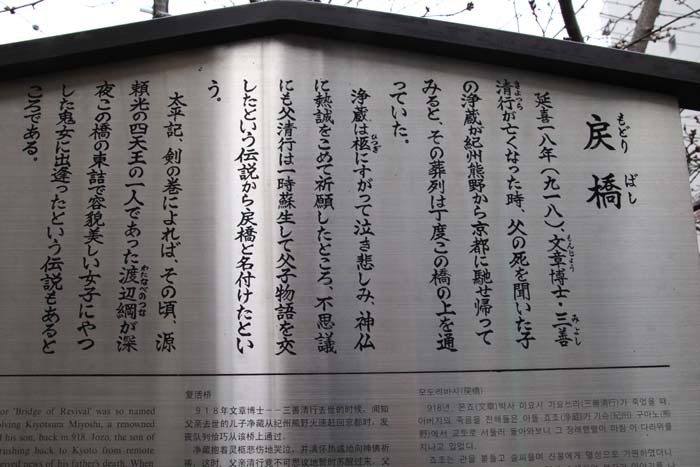 戻橋
もどり ばし
延喜一八年(九一八)、文章博士・三善
もんじょう みよし
清行が亡くなった時、父の死を聞いた子
きよつら
の浄蔵が紀州熊野から京都に馳せ帰って
みると、その葬列は丁度この橋の上を通
っていた。
浄蔵は柩にすがって泣き悲しみ、神仏
ひつぎ
に熱誠をこめて祈願したところ、不思議
にも父清行は一時蘇生して父子物語を交
したという伝説から戻橋と名付けたとい
う。
太平記、剣の巻によれば、その頃、源
頼光の四天王の一人であった渡辺綱が深
わたなべのつな
夜この橋の東詰で容貌美しい女子にやつ
した鬼女に出逢ったという伝説もあると
ころである。
or 'Bridge of Revival' was so named
olving Kiyotsura Miyoshi, a renowned
his son, back in 918. Jozo, the son of
rushing back to Kyoto from remote
word of his father's death. When
复活桥
918年文章博士——三善清行去世的时候,闻知
父亲去世的儿子净藏从纪州熊野火速赶回京都时,发
丧队列恰巧从该桥上通过。
净藏抱着灵柩悲伤地哭泣,并满怀热诚地向神佛祈
모도리바시(戾橋)
918년, 몬죠(文章)박사 미요시 기요쓰라(三善清行)가 죽었을 때,
아버지의 죽음을 전해들은 아들 죠조(浄蔵)가 기슈(紀州) 구마노(熊
野)에서 교토로 서둘러 돌아와보니 그 장례행렬이 마침 이 다리위를
지나고 있었다.